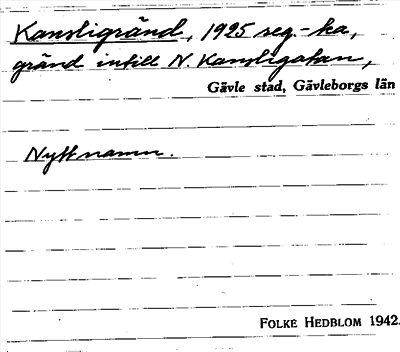 Kansligränd, 1925 reg.-ka,
gränd intill N. Kansligatan,
Gävle stad, Gävleborgs län
Nytt namn.
FOLKE HEDBLOM 1942.